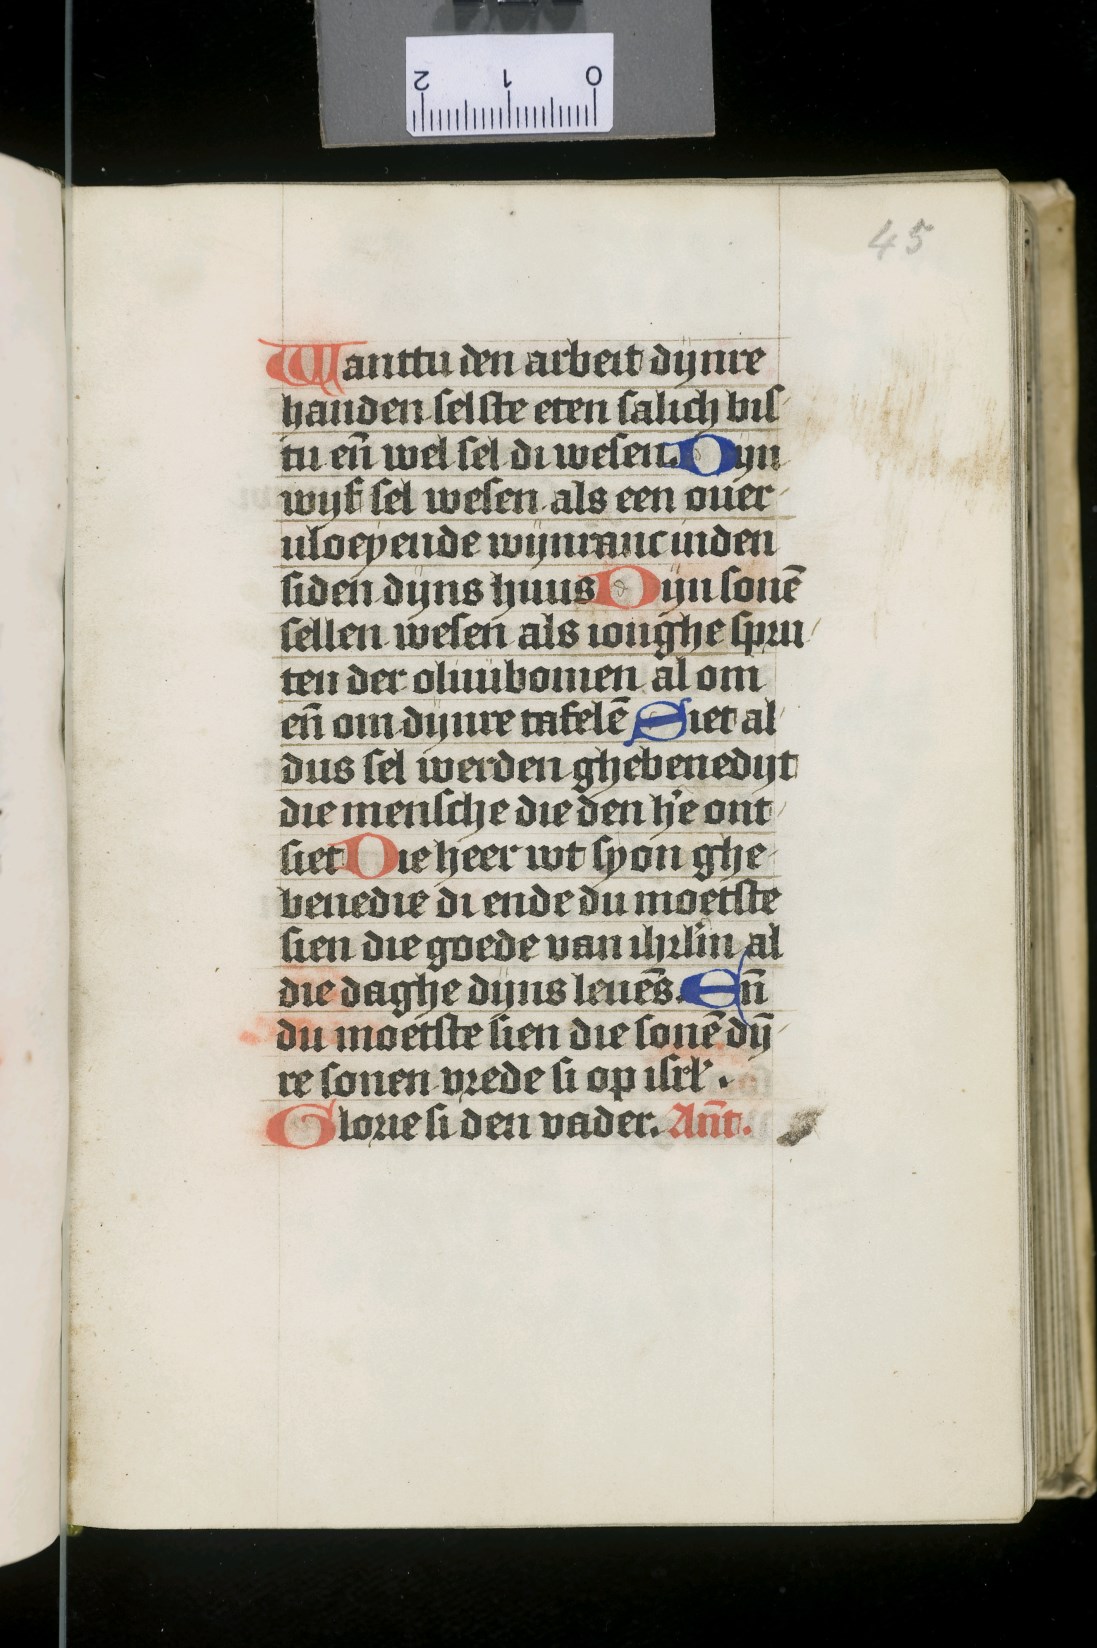 2 1 0
45
Wanttu den arbeit dijnre
handen selste eten salich bis
tu en̄ wel sel di wesen. Dijn
wijf sel wesen als een ouer
uloeyende wijnranc inden
siden dijns huus Dijn sonē
sellen wesen als ionghe spru
ten der oliuibomen al om
en̄ om dijnre tafelē Siet al
dus sel werden ghebenedijt
die mensche die den h̄e ont
siet Die heer wt syon ghe
benedie di ende du moetste
sien die goede van ihrl̄m al
die daghe dijns leuēs. En̄
du moetste sien die sonē dij̄
re sonen vrede si op isrl̄.
Glorie si den vader. An̄t.